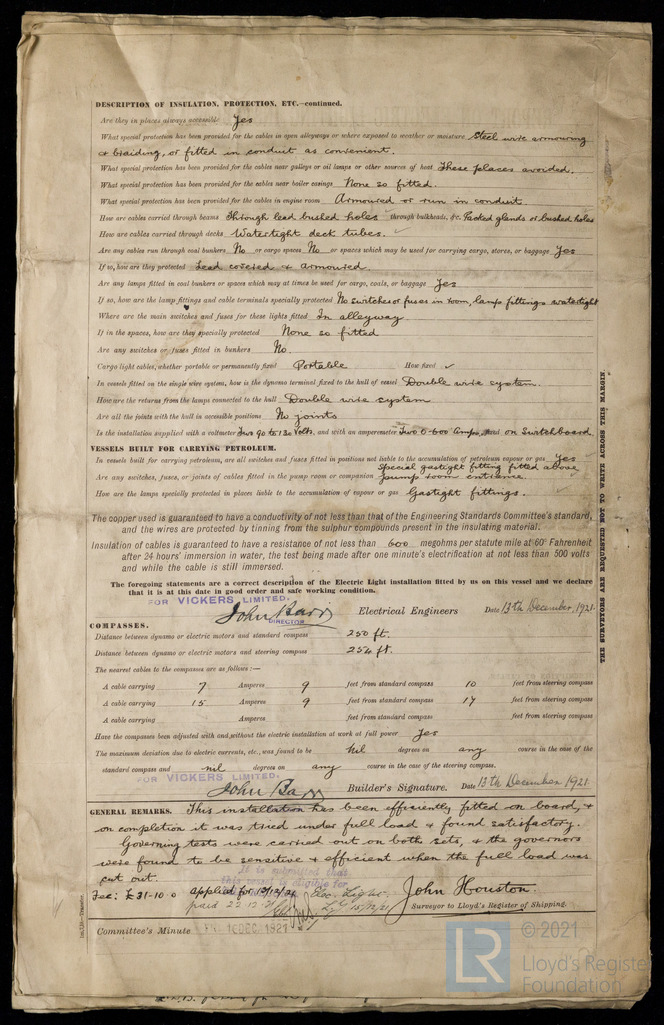 DESCRIPTION OF INSULATION, PROTECTION, ETC.—continued.
Are they in places always accessible Yes
What special protection has been provided for the cables in open alleyways or where exposed to weather or moisture Steel wire armouring
& braiding, or fitted in conduit as convenient.
What special protection has been provided for the cables near galleys or oil lamps or other sources of heat These places avoided.
What special protection has been provided for the cables near boiler casings None so fitted.
What special protection has been provided for the cables in engine room Armoured or run in conduit.
How are cables carried through beams Through lead bushed holes through bulkheads, &c. Packed glands or bushed holes
How are cables carried through decks Watertight deck tubes.
Are any cables run through coal bunkers No or cargo spaces No or spaces which may be used for carrying cargo, stores, or baggage Yes
If so, how are they protected Lead covered & armoured.
Are any lamps fitted in coal bunkers or spaces which may at times be used for cargo, coals, or baggage Yes
If so, how are the lamp fittings and cable terminals specially protected No switches or fuses in room, lamp fittings watertight
Where are the main switches and fuses for these lights fitted In alleyway
If in the spaces, how are they specially protected None so fitted
Are any switches or fuses fitted in bunkers No.
Cargo light cables, whether portable or permanently fixed Portable How fixed ✓
In vessels fitted on the single wire system, how is the dynamo terminal fixed to the hull of vessel Double wire system.
How are the returns from the lamps connected to the hull Double wire system
Are all the joints with the hull in accessible positions No joints
Is the installation supplied with a voltmeter Two 90 to 130 Volts, and with an amperemeter Two 0-600 Amps, fixed on Switchboard.
VESSELS BUILT FOR CARRYING PETROLEUM.
In vessels built for carrying petroleum, are all switches and fuses fitted in positions not liable to the accumulation of petroleum vapour or gas Yes
Special gastight fitting fitted above
Are any switches, fuses, or joints of cables fitted in the pump room or companion pump room entrance.
How are the lamps specially protected in places liable to the accumulation of vapour or gas Gastight fittings.
The copper used is guaranteed to have a conductivity of not less than that of the Engineering Standards Committee's standard,
and the wires are protected by tinning from the sulphur compounds present in the insulating material.
Insulation of cables is guaranteed to have a resistance of not less than 600 megohms per statute mile at 60° Fahrenheit
after 24 hours' immersion in water, the test being made after one minute's electrification at not less than 500 volts
and while the cable is still immersed.
The foregoing statements are a correct description of the Electric Light installation fitted by us on this vessel and we declare
that it is at this date in good order and safe working condition.
FOR VICKERS LIMITED.
John Barr Electrical Engineers Date 13th December, 1921.
DIRECTOR
COMPASSES.
Distance between dynamo or electric motors and standard compass 250 ft.
Distance between dynamo or electric motors and steering compass 254 ft.
The nearest cables to the compasses are as follows:—
A cable carrying 7 Amperes 9 feet from standard compass 10 feet from steering compass
A cable carrying 15 Amperes 9 feet from standard compass 17 feet from steering compass
A cable carrying Amperes feet from standard compass feet from steering compass
Have the compasses been adjusted with and without the electric installation at work at full power Yes
The maximum deviation due to electric currents, etc., was found to be Nil degrees on any course in the case of the
standard compass and nil degrees on any course in the case of the steering compass.
FOR VICKERS LIMITED.
John Barr Builder's Signature. Date 13th December 1921.
GENERAL REMARKS. This installation has been efficiently fitted on board, &
on completion it was tried under full load & found satisfactory.
Governing tests were carried out on both sets, & the governors
were found to be sensitive & efficient when the full load was
cut out.
It is submitted that
this vessel is eligible for
Fee: £31-10-0 applied for 13/12/21 Elec. Light. John Houston.
paid 22.12.21 15/12/21 Surveyor to Lloyd's Register of Shipping.
Committee's Minute FRI. 16 DEC. 1921
THE SURVEYORS ARE REQUESTED NOT TO WRITE ACROSS THIS MARGIN
LR © 2021
Lloyd's Register
Foundation